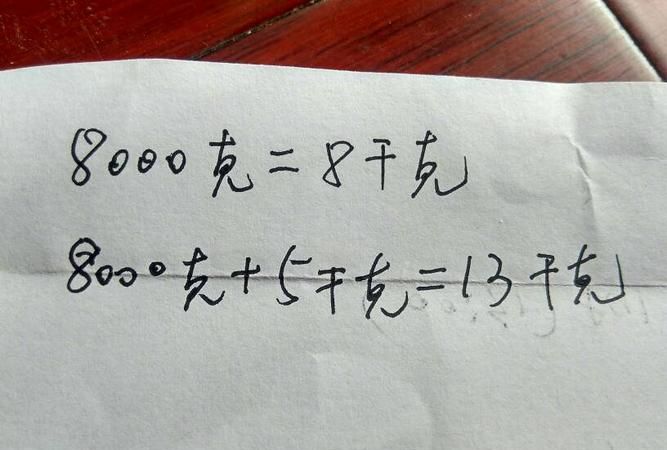 8000克=8千克
8000克+5千克=13千克